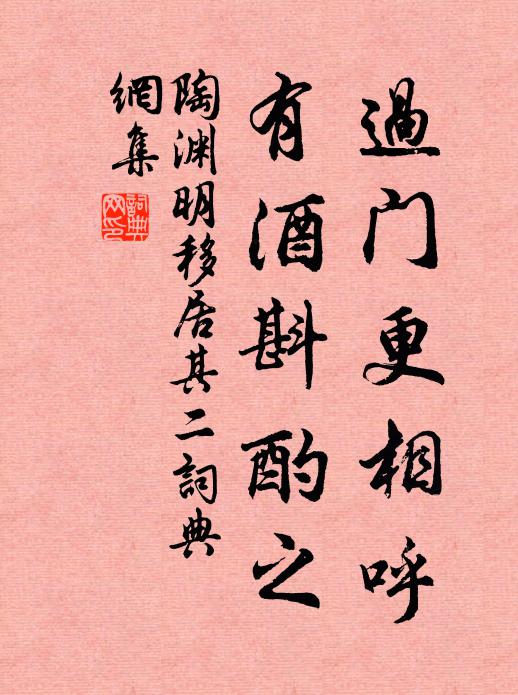 過门更相呼
有酒斟酌之
陶渊明移居其二詞典
網集
詞典网印